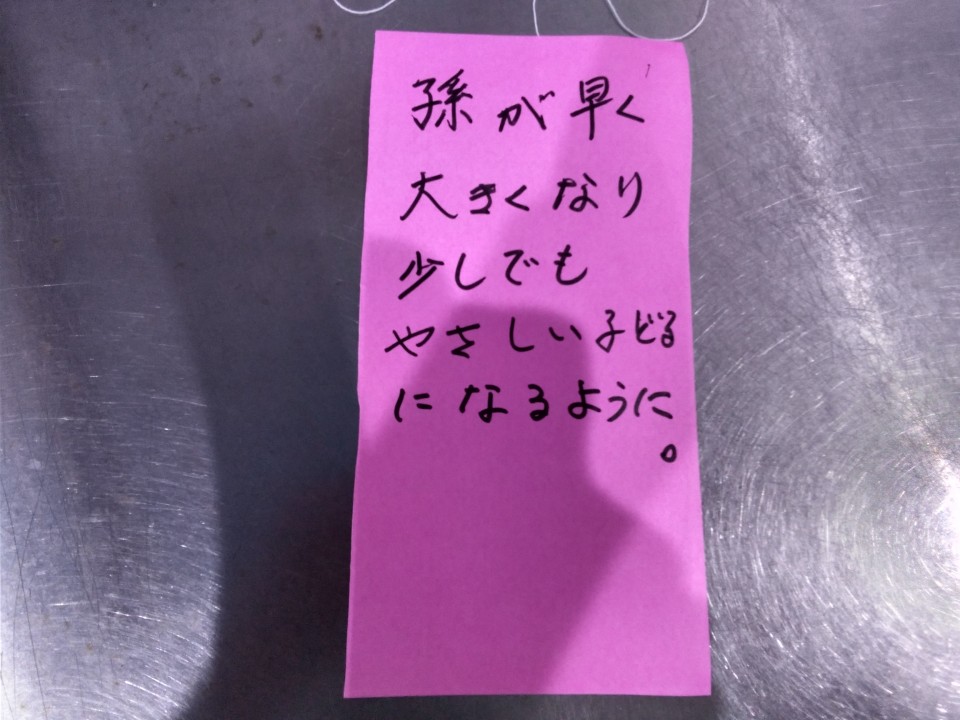 孫が早く
大きくなり
少しでも
やさしい子どる
になるように
。